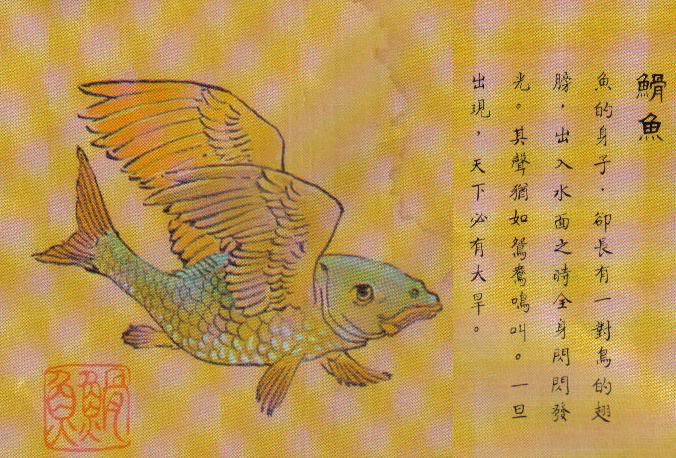 鰼魚
魚的身子，卻長有一對鳥的翅
膀，出入水面之時全身閃閃發
光。其聲猶如鴛鴦鳴叫。一旦
出現，天下必有大旱。